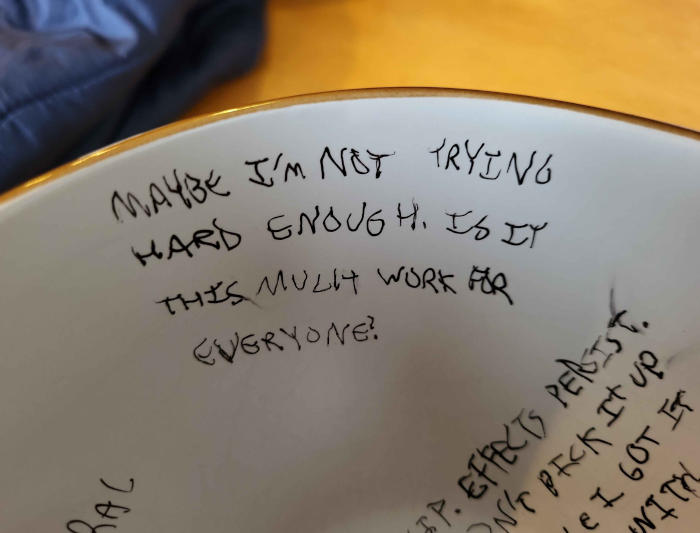 MAYBE I'M NOT TRYING
HARD ENOUGH. IS IT
THIS MUCH WORK FOR
EVERYONE?
EFFECTS PERSIST.
PICK IT UP
I GOT IT
WITH